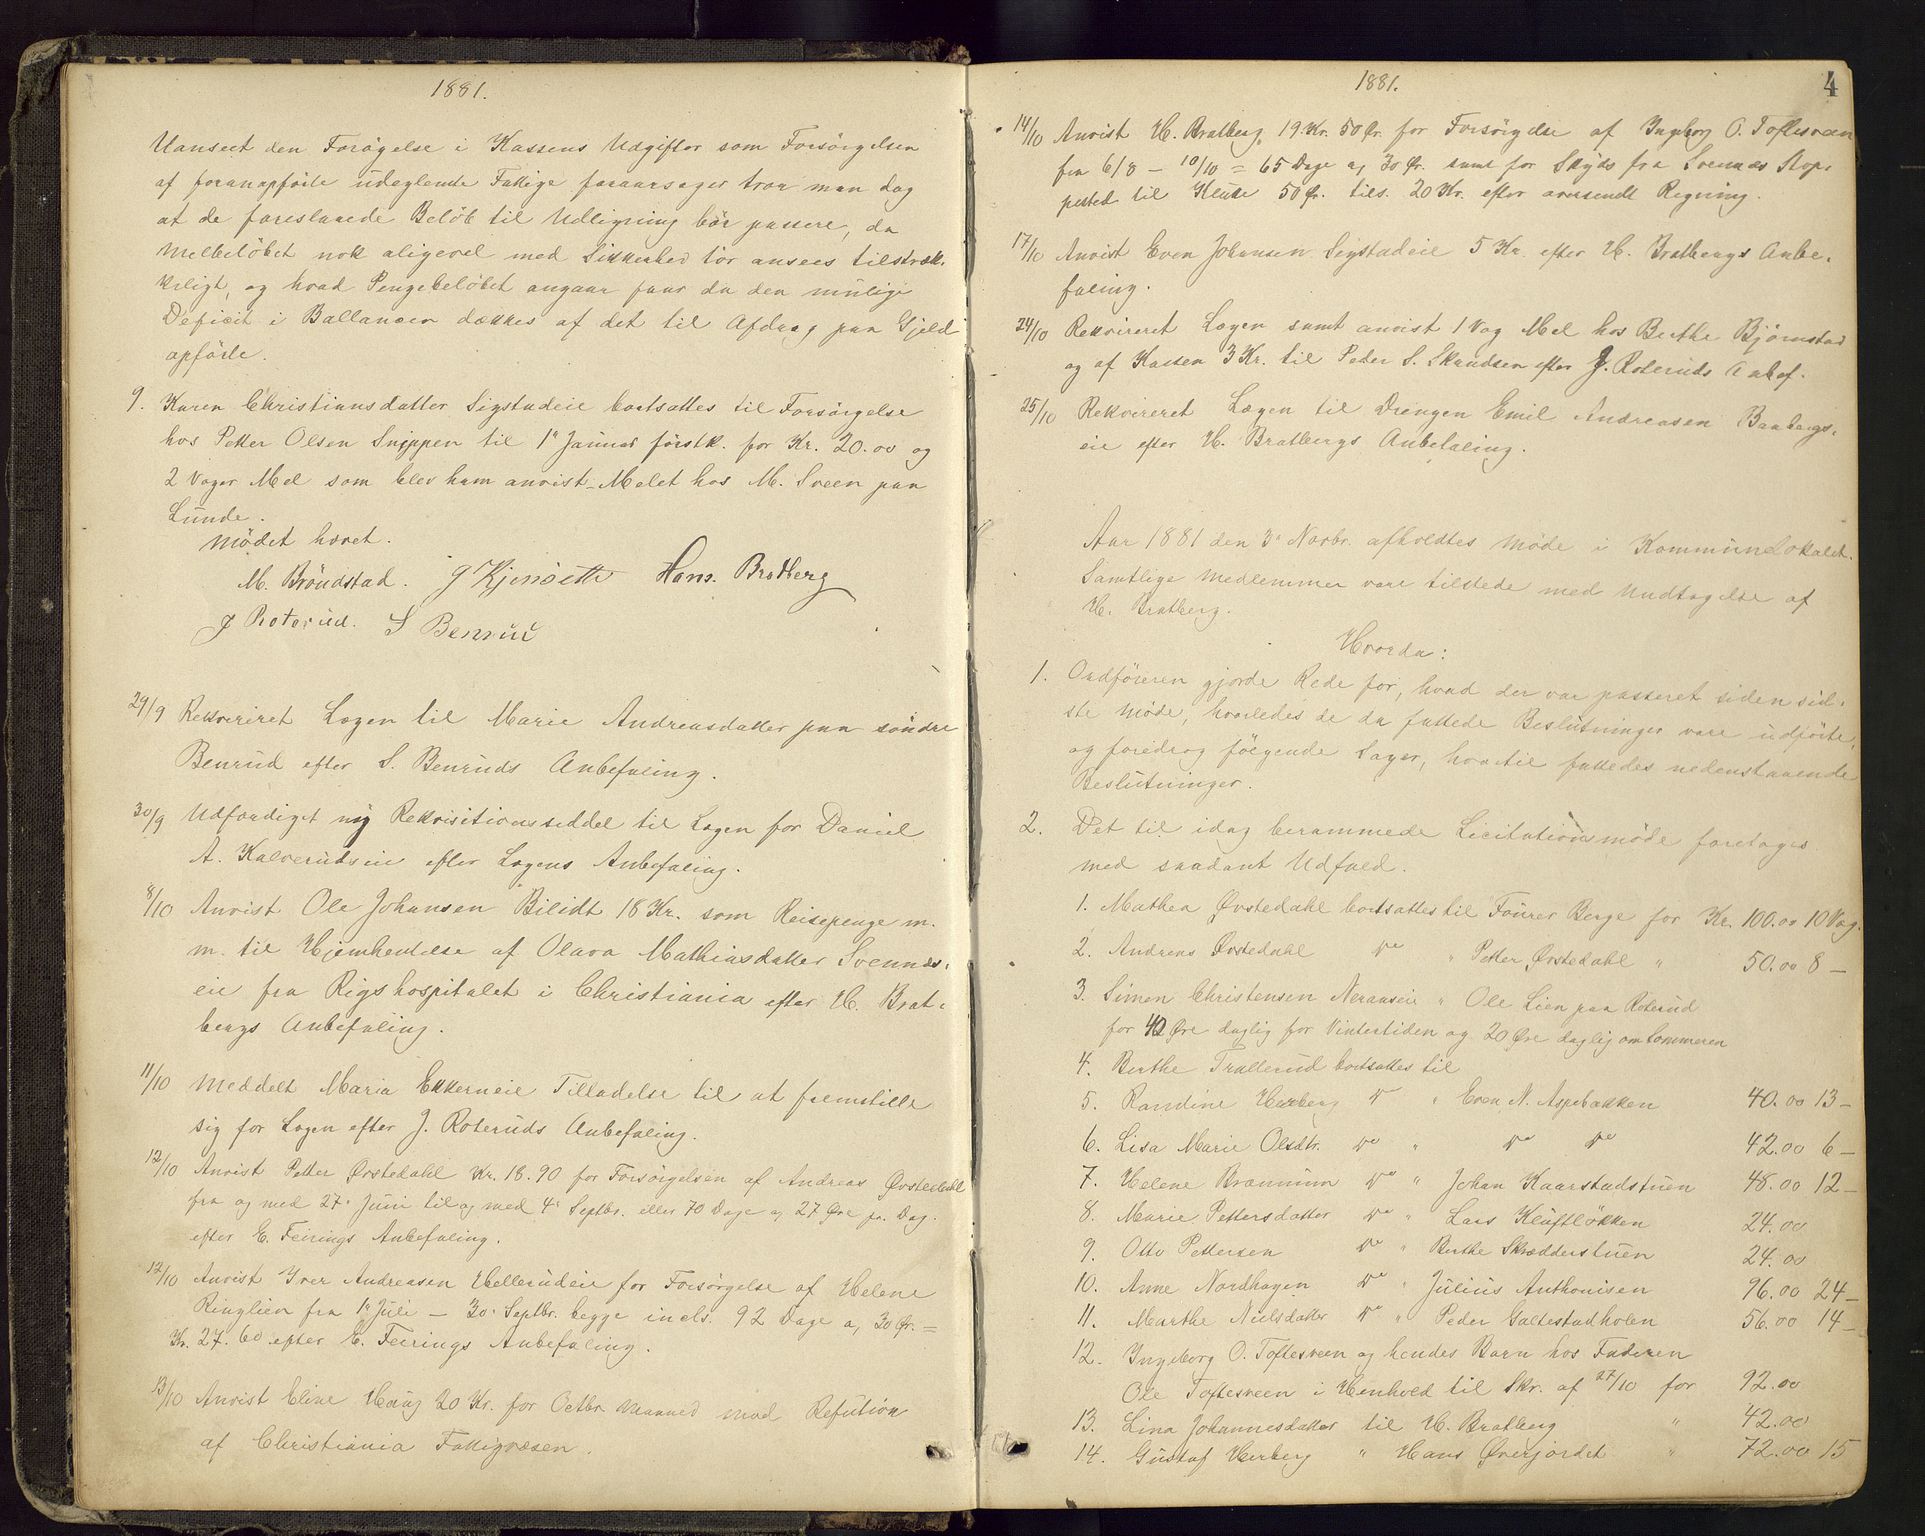 1881.
Uanseet den Forøgelse i Kassens Udgifter som Forsørgelsen
af foranopførte udeglemte Fattige foraarsager tror man dog
at de foreslaaede Beløb til Udligning bør passere, da
Melbeløbet nok aligevel med Sikkerhed tør ansees tilstræk-
keligt, og hvad Pengebeløbet angaar faar da den mulige
Deficit i Ballancen dækkes af det til Afdrag paa Gjeld
opførte.
9. Karen Christiansdatter Sigstadeie bortsattes til Forsørgelse
hos Petter Olsen Snippen til 1ste Januar førstk. for Kr. 20.00 og
2 Voger Mel som blev ham anvist - Melet hos M. Sveen paa
Lunde.
Mødet hævet.
M. Brøndstad. J Kjensætte Hans. Bratberg
J Roterud. S Benrud
29/9 Rekvireret Lægen til Marie Andreasdatter paa søndre
Benrud efter S. Benruds Anbefaling.
30/9 Udfærdiget ny Rekvisitionsseddel til Lægen for Daniel
A. Kalverudseie efter Lægens Anbefaling.
8/10 Anvist Ole Johansen Bilidt 18 Kr. som Reisepenge m.
m. til Hjemhentelse af Olava Mathiasdatter Svennæs-
eie fra Rigshospitalet i Christiania efter H. Brat-
bergs Anbefaling.
11/10 Meddelt Maria Ekkerneie Tilladelse til at fremstille
sig for Lægen efter J. Roteruds Anbefaling.
12/10 Anvist Petter Øvstedahl Kr. 18.90 for Forsørgelsen af Andreas Øvstedahl
fra og med 27de Juni til og med 4de Septbr. eller 70 Dage a, 27 Øre pr. Dag.
efter E. Feirings Anbefaling.
12/10 Anvist Iver Andreasen Hellerudeie for Forsørgelse af Helene
Ringlien fra 1ste Juli — 30te Septbr. begge incls. 92 Dage a, 30 Ør. =
Kr. 27.60 efter E. Feirings Anbefaling.
13/10 Anvist Eline Haug 20 Kr. for Octbr. Maaned mod Refution
af Christiania Fattigvæsen.
1881.
4
14/10 Anvist H. Bratberg 19 Kr. 50 Ør. for Forsørgelse af Ingeborg O. Toftesveen
fra 6/8 — 10/10 = 65 Dage a, 30 Ør. samt for Skyds fra Svennæs Stop-
pested til Kluke 50 Ør. tils. 20 Kr. efter indsendt Regning.
17/10 Anvist Even Johansen Sigstadeie 5 Kr. efter H. Bratbergs Anbe-
faling.
24/10 Rekvireret Lægen samt anvist 1 Vog Mel hos Berthe Bjørnstad
og af Kassen 3 Kr. til Peder S. Skundsen efter J. Roteruds Anbef.
25/10 Rekvireret Lægen til Drengen Emil Andreasen Baabergs-
eie efter H. Bratbergs Anbefaling.
Aar 1881 den 3die Novbr. afholdtes Møde i Kommunelokalet.
Samtlige Medlemmer vare tilstede med Undtagelse af
H. Bratberg.
Hvorda:
1. Ordføreren gjorde Rede for, hvad der var passeret siden sid-
ste Møde, hvorledes de da fattede Beslutninger vare udførte,
og foredrog følgende Sager, hvortil fattedes nedenstaaende
Beslutninger.
2. Det til idag berammede Licitationsmøde foretoges
med saadant Udfald.
1. Mathea Øvstedahl bortsattes til Fourer Berge for Kr. 100.00 10 Vog.
2. Andreas Øvstedahl do " Petter Øvstedahl " 50.00 8 —
3. Simen Christensen Neraaseie " Ole Lien paa Roterud
for 40 Øre daglig for Vintertiden og 20 Øre daglig om Sommeren
4. Berthe Trallerud bortsattes til
5. Randine Herberg do " Even N. Aspebakken 40.00 13 —
6. Lisa Marie Olsdtr. do " do do 42.00 6 —
7. Helene Brænnum do " Johan Kaarstadstuen 48.00 12 —
8. Marie Pettersdatter do " Lars Kluftløkken 24.00
9. Otto Pettersen do " Berthe Skrædderstuen 24.00
10. Anne Nordhagen do " Julius Anthonisen 96.00 24 —
11. Marthe Nielsdatter do " Peder Galtestadholen 56.00 14 —
12. Ingeborg O. Toftesveen og hendes Barn hos Faderen
Ole Toftesveen i Henhold til Skr. af 27/10 for 92.00
13. Lina Johannesdatter til H. Bratberg " 42.00
14. Gustaf Herberg " Hans Øverjordet " 72.00 15